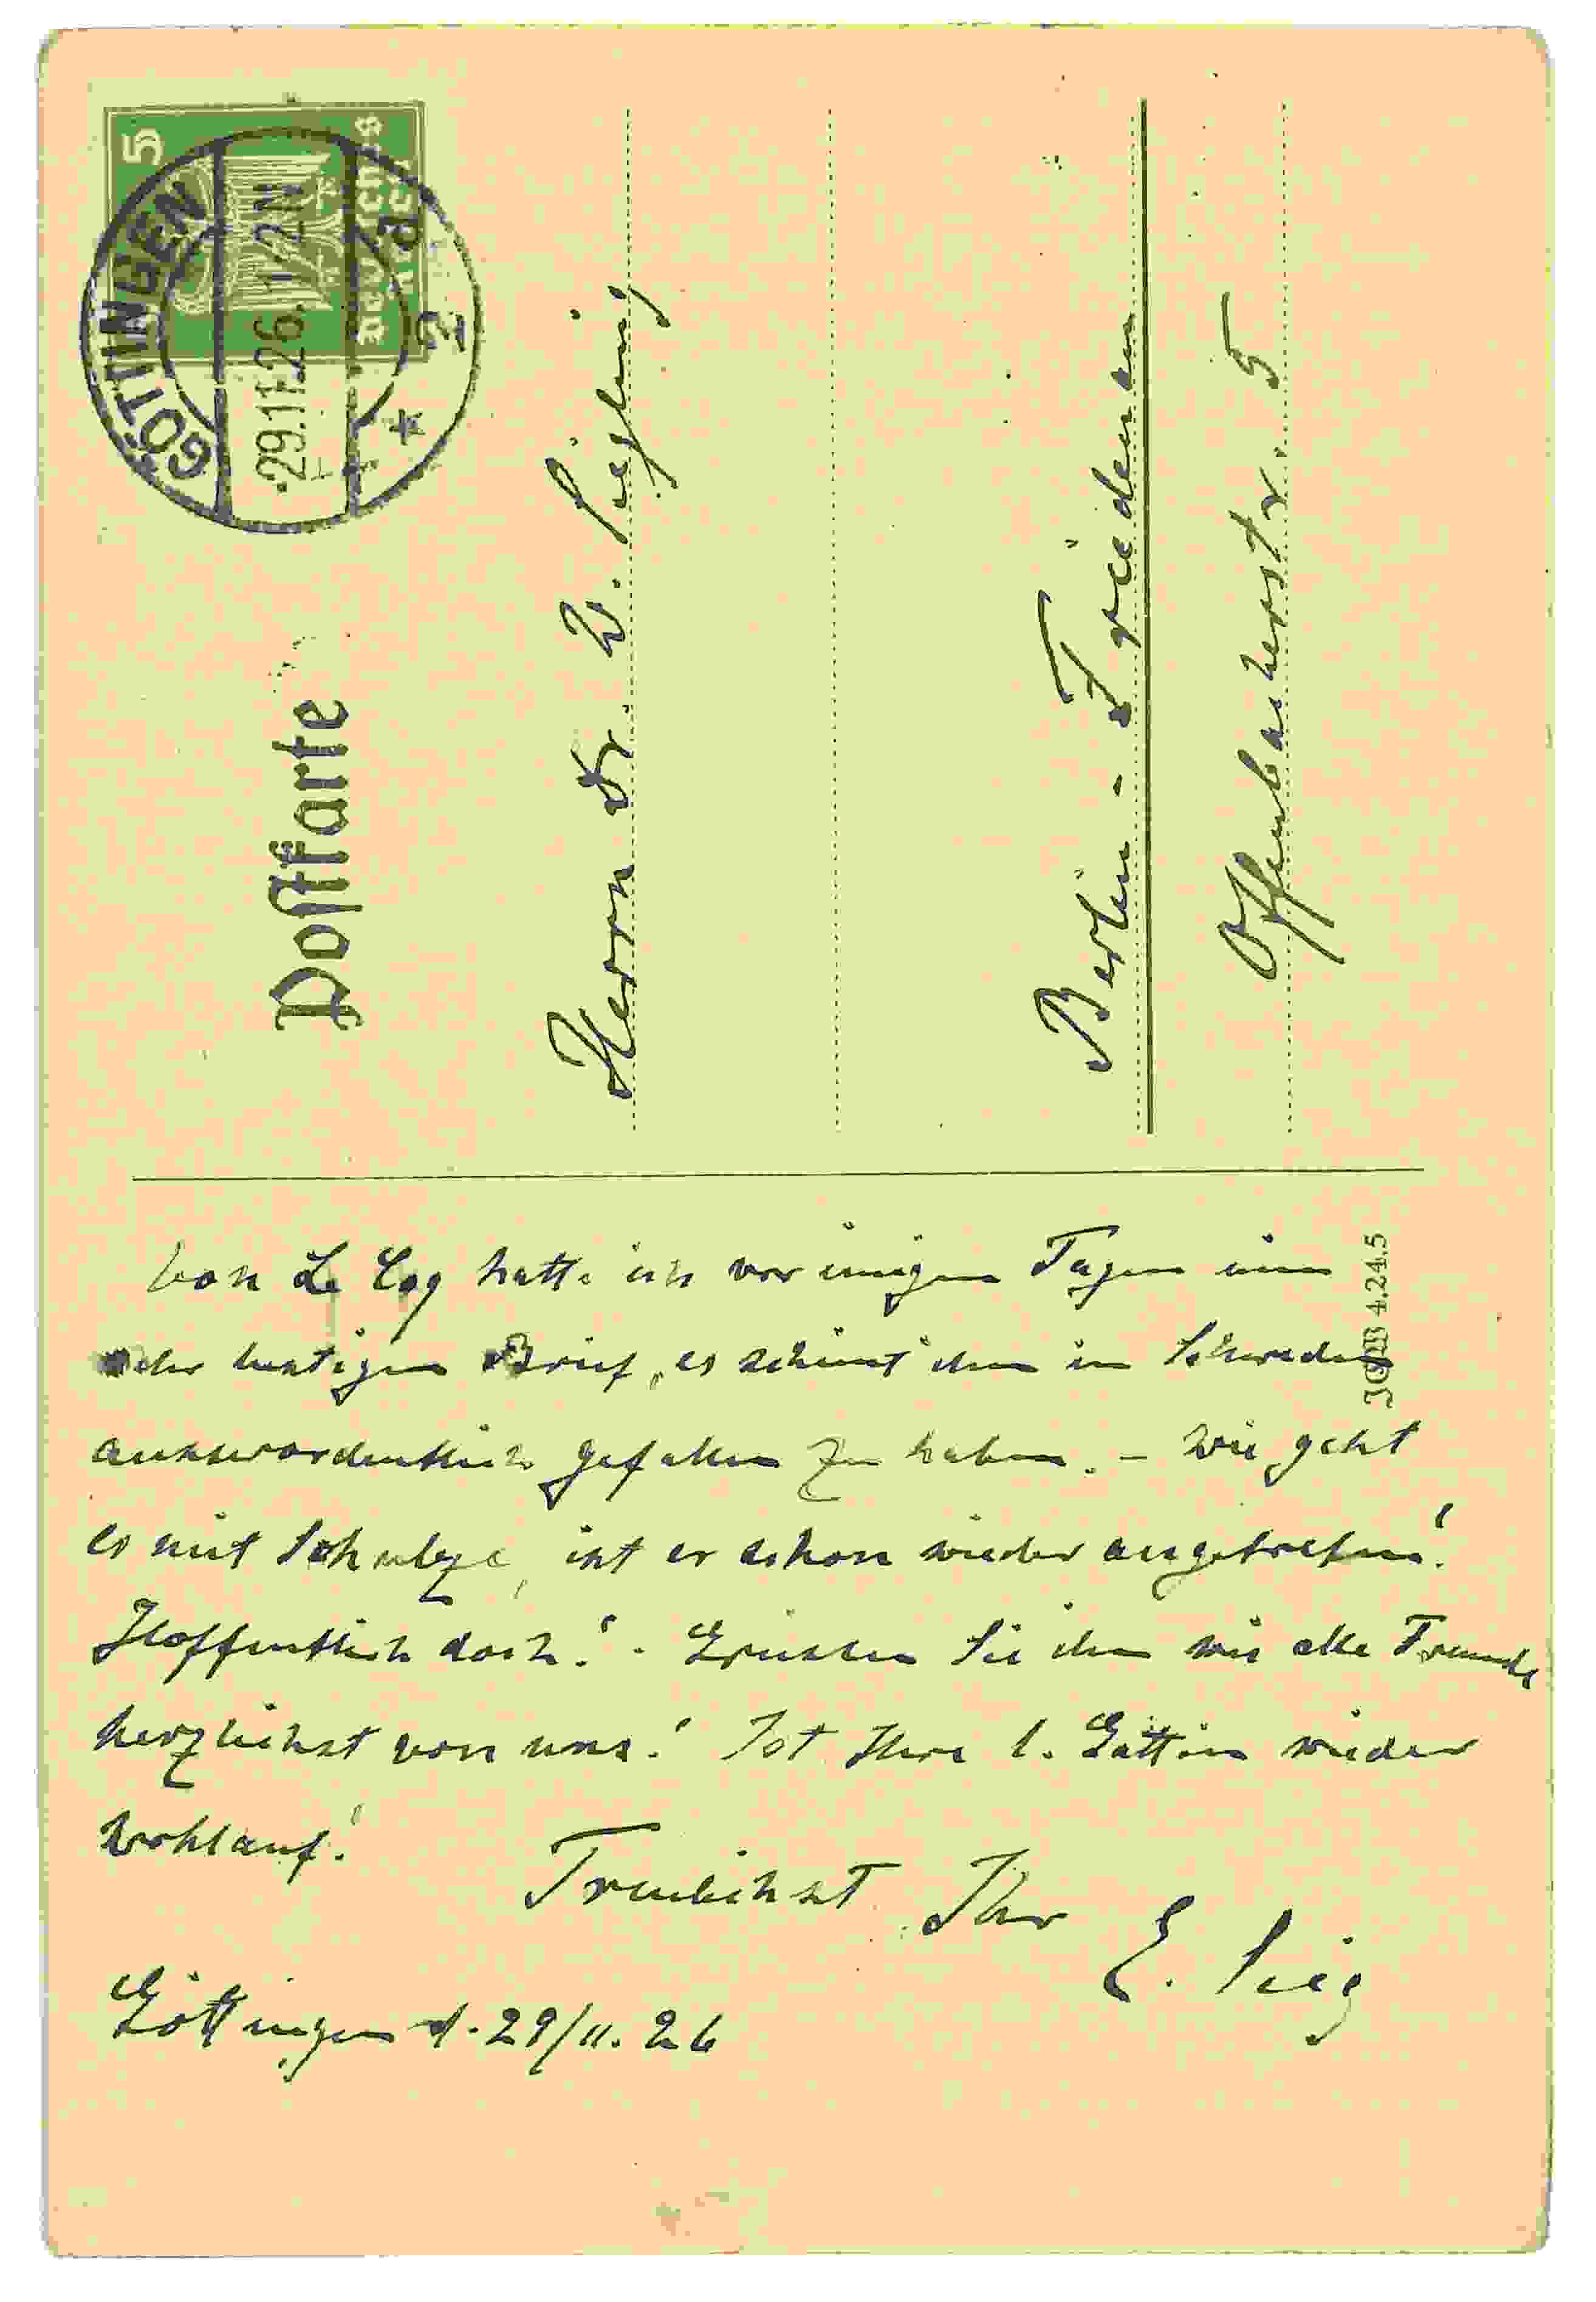 5
Deutsches Reich
GÖTTINGEN
29.11.26. 1-2N
* 2 d
Postkarte
Herrn Dr. W. Siegling
Berlin - Friedenau
Offenbacherstr. 5
Von Le Coq hatte ich vor einigen Tagen einen
sehr lustigen Brief, es scheint ihm in Schweden
ausserordentlich gefallen zu haben. – Wie geht
es mit Schulze, ist er schon wieder angetreten?
Hoffentlich doch! - Grüssen Sie ihn wie alle Freunde
herzlichst von uns! Ist Ihre l. Gattin wieder
wohlauf?
Treulichst Ihr
E. Sieg
Göttingen d. 29/11. 26
JGW 4.24.5